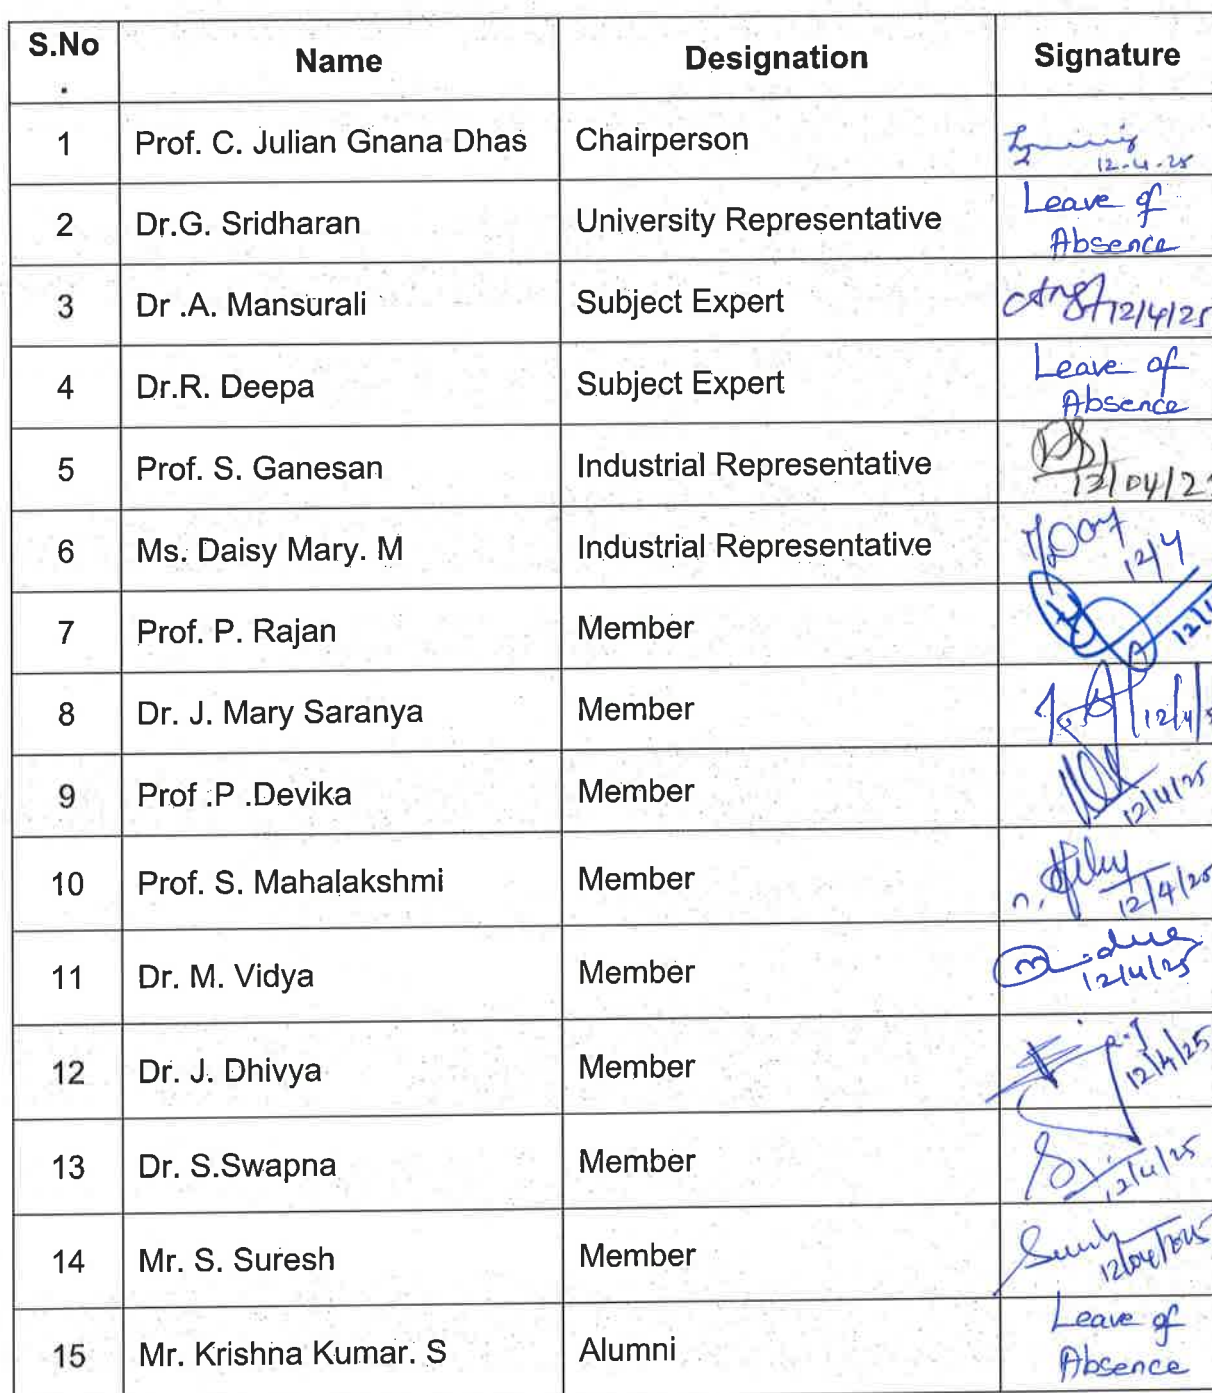 S.No. Name Designation Signature
1 Prof. C. Julian Gnana Dhas Chairperson 12-4-25
2 Dr.G. Sridharan University Representative Leave of Absence
3 Dr .A. Mansurali Subject Expert 12/4/25
4 Dr.R. Deepa Subject Expert Leave of Absence
5 Prof. S. Ganesan Industrial Representative 12/04/2
6 Ms. Daisy Mary. M Industrial Representative 12/4
7 Prof. P. Rajan Member
8 Dr. J. Mary Saranya Member 12/4/
9 Prof .P .Devika Member 12/4/25
10 Prof. S. Mahalakshmi Member 12/4/25
11 Dr. M. Vidya Member 12/4/25
12 Dr. J. Dhivya Member 12/4/25
13 Dr. S.Swapna Member 12/4/25
14 Mr. S. Suresh Member 12/04/2025
15 Mr. Krishna Kumar. S Alumni Leave of Absence